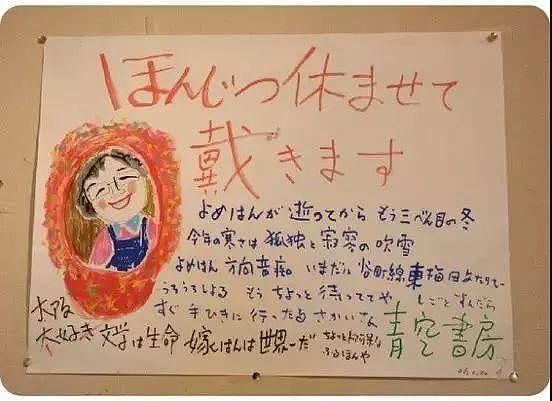 ほんじつ休ませて
戴きます
よめはんが逝ってから もう三べん目の冬
今年の寒さは孤独と寂寞の吹雪
よめはん方向音痴。いまだに谷町線東梅田あたりで
うろうろしよる もう ちょっと待っててや
しごとすんだら
すぐ手ひきに行ったるさかいな
大阪
大好き文学は生命 嫁はんは世界一だ
ちょっと
ふるほんや
青空書房